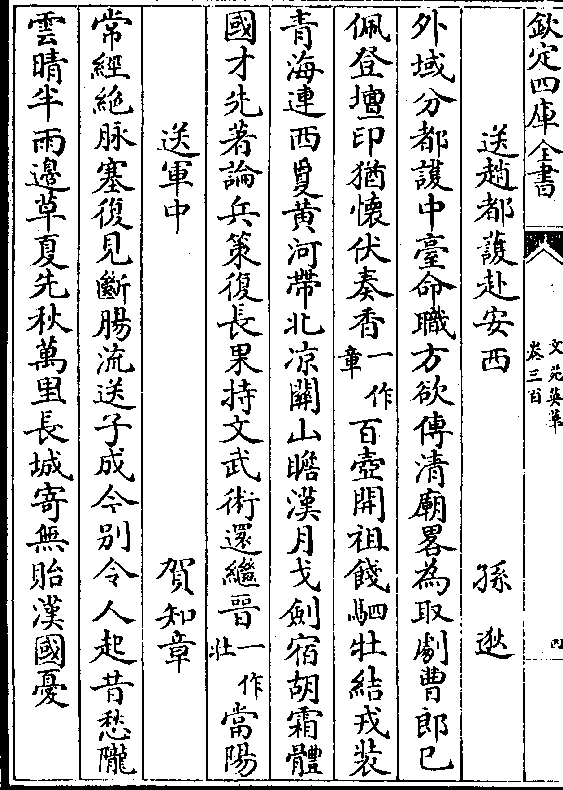 欽定四庫全書
文苑英華
卷三百
四
送趙都護赴安西 孫逖
外域分都護中臺命職方欲傳清廟畧為取劇曹郎已
佩登壇印猶懷伏奏香一作章百壺開祖餞駟牡結戎裝
青海連西夏黄河帶北凉關山瞻漢月戈劍宿胡霜體
國才先著論兵策復長果持文武術還繼晉一作壯當陽
送軍中 賀知章
常經絶脉塞復見斷腸流送子成今别令人起昔愁隴
雲晴半雨邊草夏先秋萬里長城寄無貽漢國憂